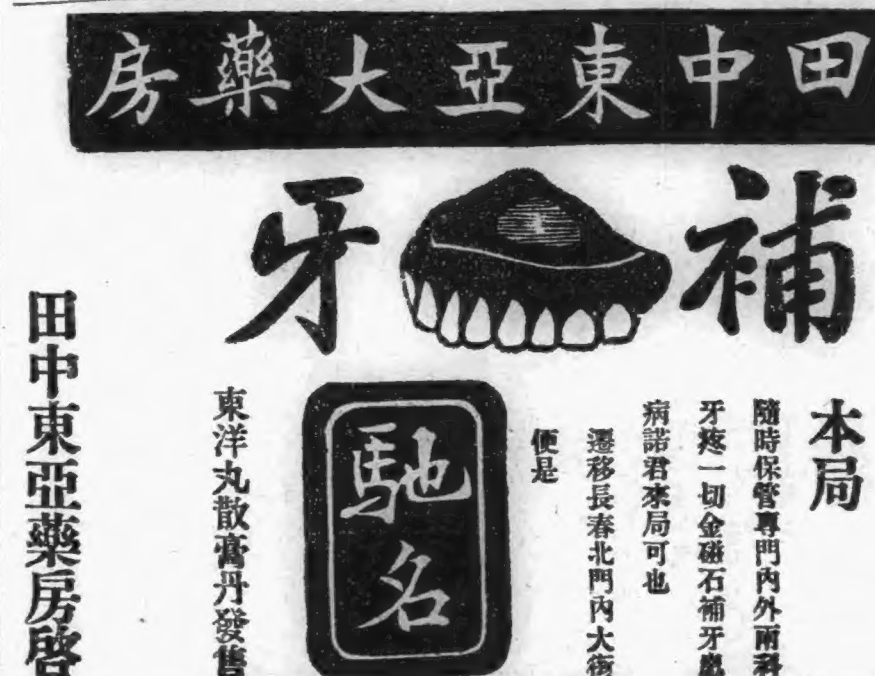 田中東亞大藥房
補牙
本局
隨時保管專門內外兩科
牙疼一切金磁石補牙
病諸君來局可也
遷移長春北門內大街
便是
馳名
東洋丸散膏丹發售
田中東亞藥房啓